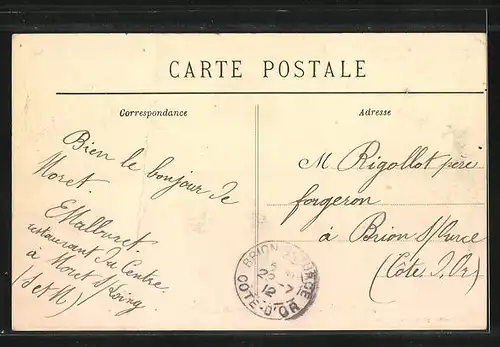 CARTE POSTALE
Correspondance
Bien le bonjour de
Moret.
restaurant du Centre
à Moret s/Loing
(S et M)
Adresse
M Rigollot père
forgeron
à Brion s/Ource
(Côte d'Or)
BRION-S-OURCE
12
CÔTE-D'OR